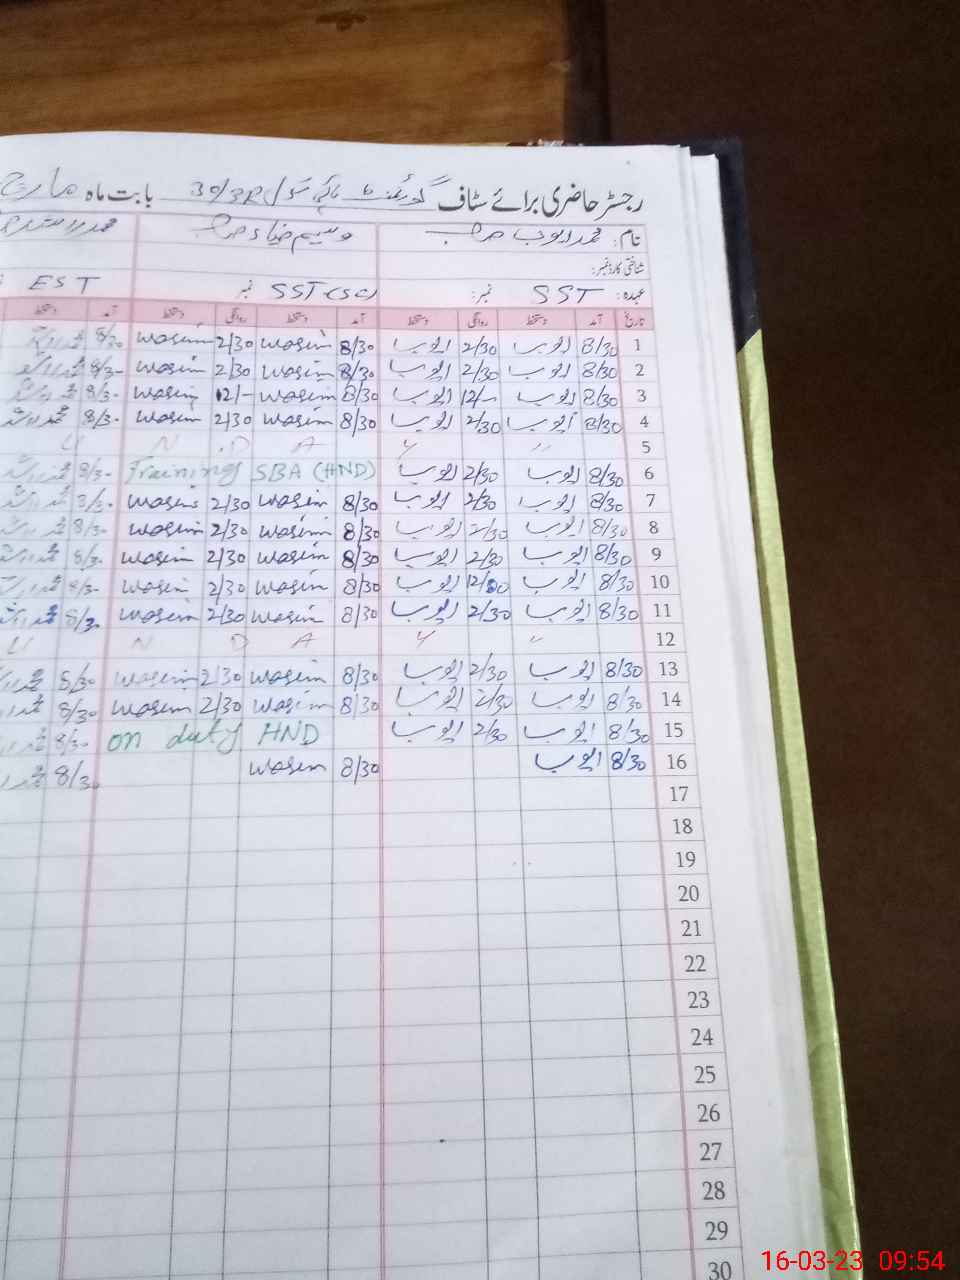 رجسٹر حاضری برائے سٹاف گورنمنٹ ہائی سکول 30/3R بابت ماہ مارچ
نام: محمد ایوب صاحب وسیم ضیاء صاحب
شناختی کارڈ نمبر:
عہدہ: SST نمبر: SST (SC) نمبر EST
تاریخ آمد دستخط روانگی دستخط آمد دستخط روانگی دستخط آمد دستخط
1 8/30 ایوب 2/30 ایوب 8/30 wasim 2/30 wasim 8/30
2 8/30 ایوب 2/30 ایوب 8/30 wasim 2/30 wasim 8/30
3 8/30 ایوب 12/- ایوب 8/30 wasim 12/- wasim 8/30
4 8/30 ایوب 2/30 ایوب 8/30 wasim 2/30 wasim 8/30
5 U N D A Y
6 8/30 ایوب 2/30 ایوب Training SBA (HND) 8/30
7 8/30 ایوب 2/30 ایوب 8/30 wasim 2/30 wasim 8/30
8 8/30 ایوب 2/30 ایوب 8/30 wasim 2/30 wasim 8/30
9 8/30 ایوب 2/30 ایوب 8/30 wasim 2/30 wasim 8/30
10 8/30 ایوب 12/00 ایوب 8/30 wasim 2/30 wasim 8/30
11 8/30 ایوب 2/30 ایوب 8/30 wasim 2/30 wasim 8/30
12 U N D A Y
13 8/30 ایوب 2/30 ایوب 8/30 wasim 2/30 wasim 8/30
14 8/30 ایوب 2/30 ایوب 8/30 wasim 2/30 wasim 8/30
15 8/30 ایوب 2/30 ایوب on duty HND 8/30
16 8/30 ایوب 8/30 wasim 8/30
17
18
19
20
21
22
23
24
25
26
27
28
29
30
16-03-23 09:54